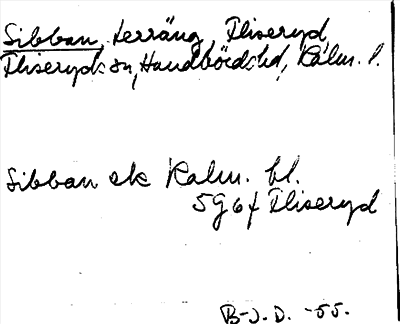 Sibban, terräng, Fliseryd,
Fliseryds sn, Handbörds hd, Kalm. l.
Sibban ek Kalm. bl.
5G6f Fliseryd
B-J.D. -55.